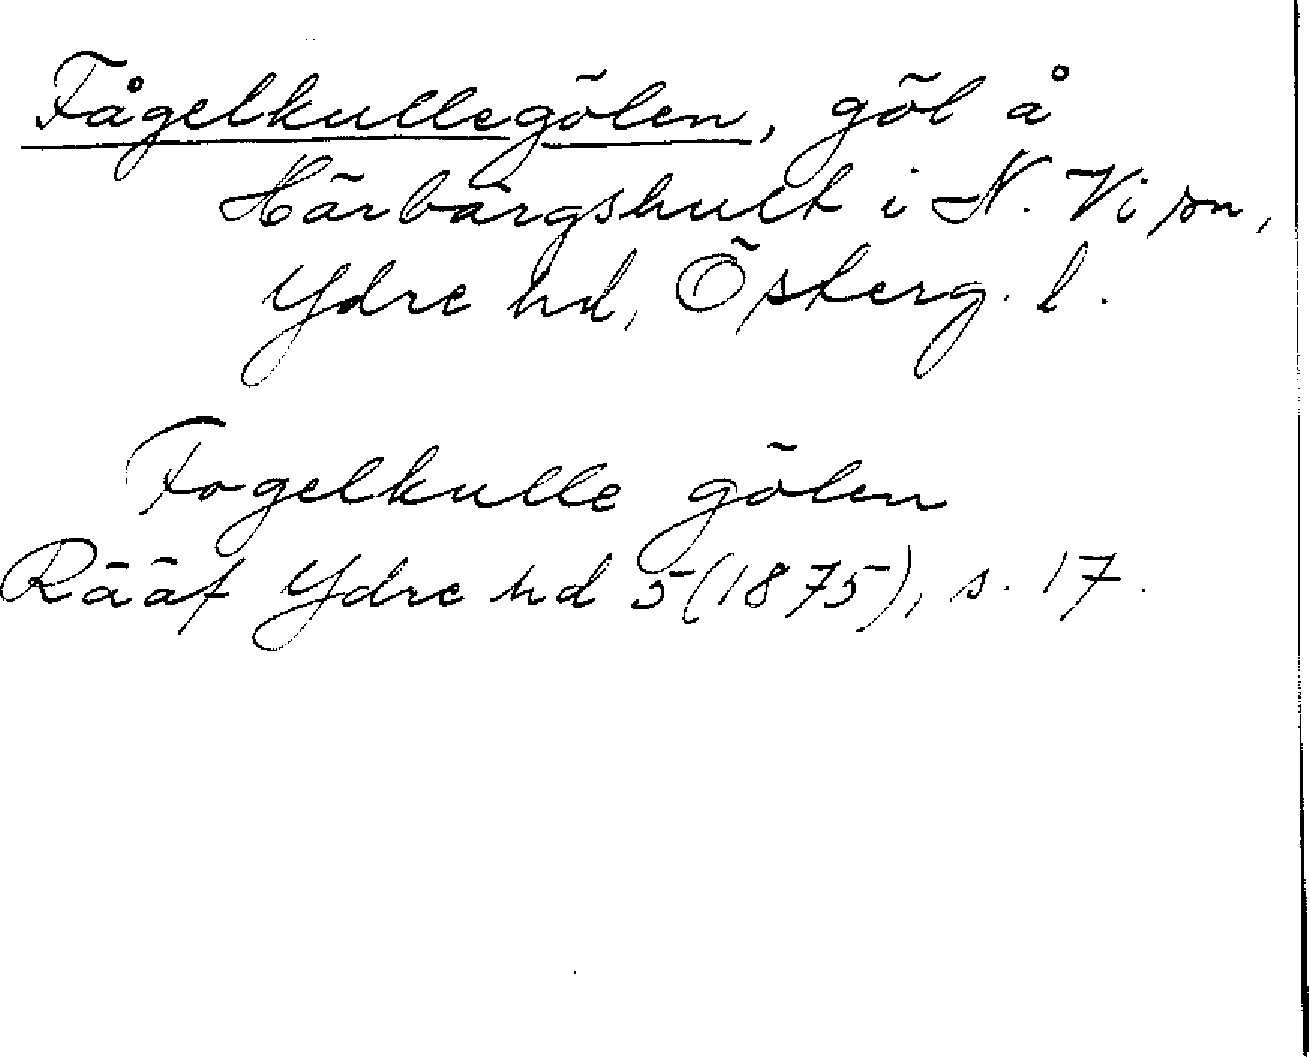 Fågelkullegölen, göl å
Härbärgshult i N. Vi sn,
Ydre hd, Österg. l.
Fogelkulle gölen
Rääf Ydre hd 5 (1875), s. 17.